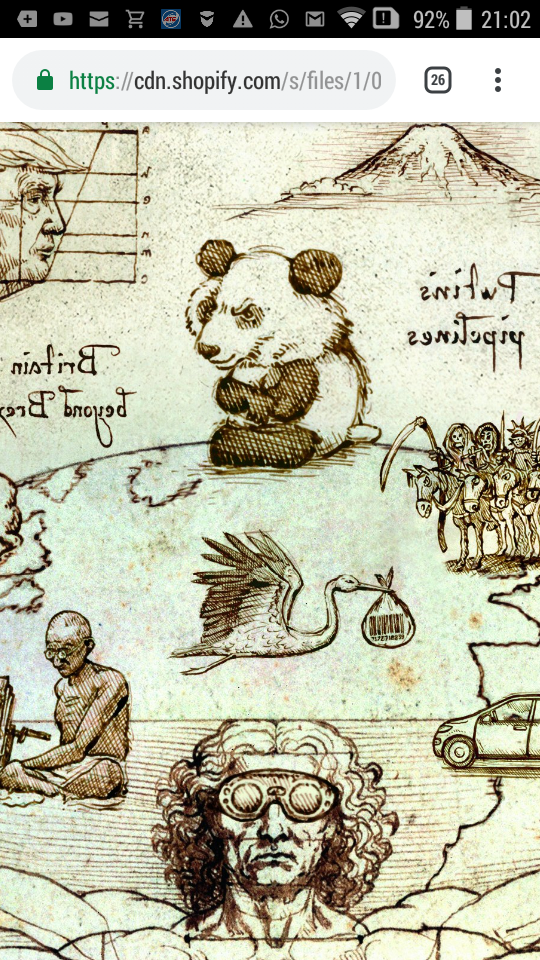 92% 21:02
https://cdn.shopify.com/s/files/1/0
26
Putin's
pipelines
Britain
beyond Brex